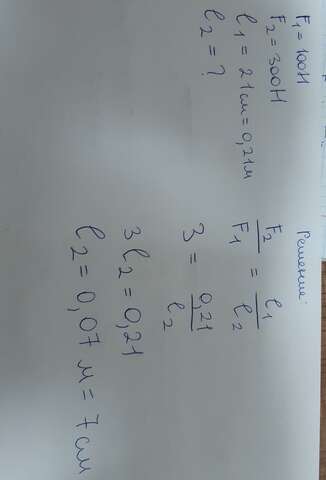 F₁ = 100Н
F₂ = 300Н
l₁ = 21см = 0,21м
l₂ = ?
Решение:
F₂/F₁ = l₁/l₂
3 = 0,21/l₂
3l₂ = 0,21
l₂ = 0,07 м = 7см